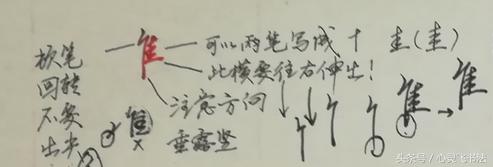 按笔
回转
不要
出尖
隹
可以两笔写成 十 圭(圭)
此横要往右伸出!
注意方向
垂露竖
隹
隹 → 隹
头条号/心灵飞书法